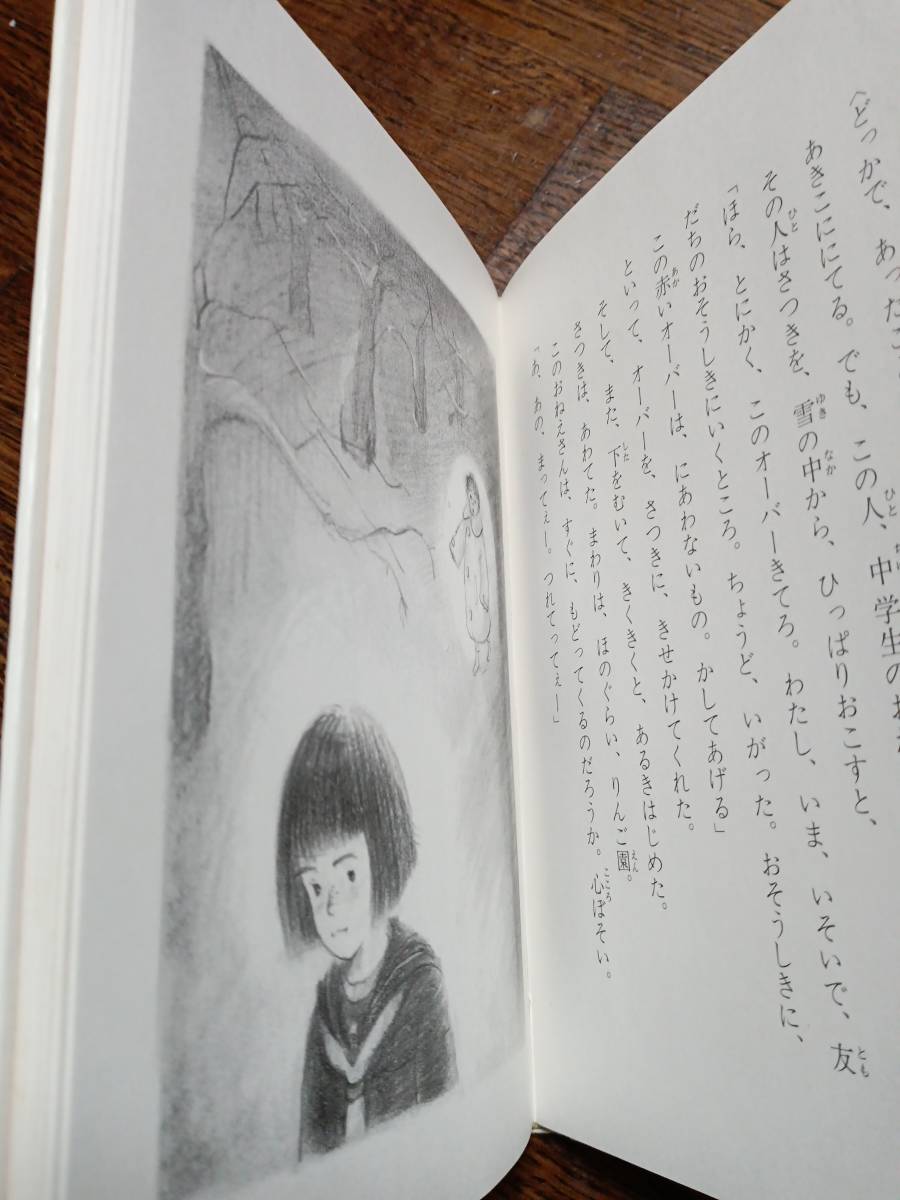 〈どっかで、あったこ
あきこににてる。でも、この人、中学生のお
その人はさつきを、雪の中から、ひっぱりおこすと、
「ほら、とにかく、このオーバーきてろ。わたし、いま、いそいで、友
だちのおそうしきにいくところ。ちょうど、いがった。おそうしきに、
この赤いオーバーは、にあわないもの。かしてあげる」
といって、オーバーを、さつきに、きせかけてくれた。
そして、また、下をむいて、きくきくと、あるきはじめた。
さつきは、あわてた。まわりは、ほのぐらい、りんご園。
このおねえさんは、すぐに、もどってくるのだろうか。心ぼそい。
「あ、あの、まってぇー。つれてってぇー」